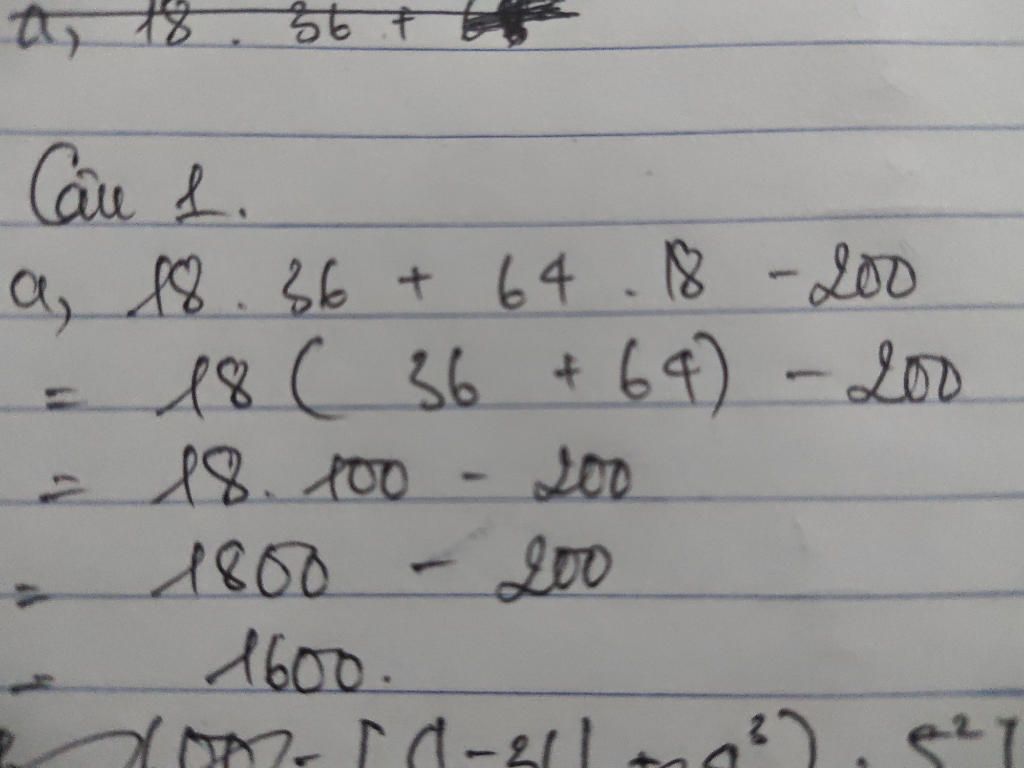 a, 18 . 36 +
Câu 1.
a, 18 . 36 + 64 . 18 - 200
= 18 ( 36 + 64) - 200
= 18. 100 - 200
= 1800 - 200
= 1600.